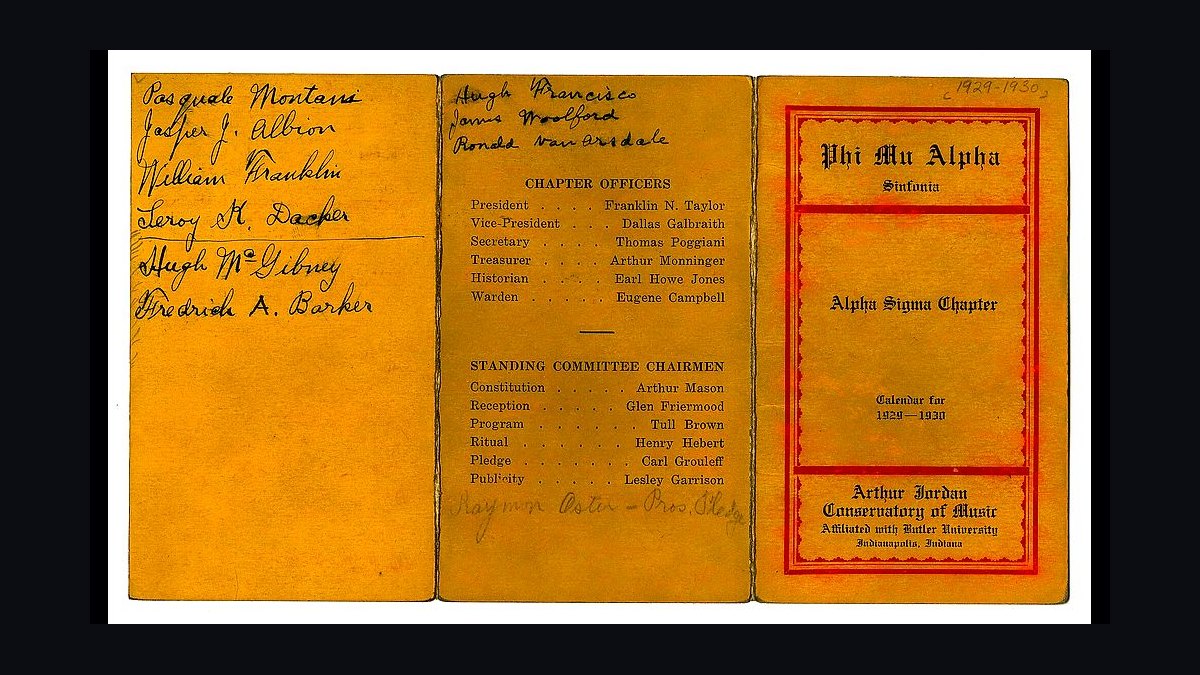 Pasquale Montani
Jasper J. Albion
William Franklin
Leroy K. Dacker
Hugh McGibney
Fredrich A. Barker
Hugh Francisco
James Woolford
Ronald Van Arsdale
CHAPTER OFFICERS
President . . . . Franklin N. Taylor
Vice-President . . . Dallas Galbraith
Secretary . . . . Thomas Poggiani
Treasurer . . . . Arthur Monninger
Historian . . . . Earl Howe Jones
Warden . . . . . Eugene Campbell
STANDING COMMITTEE CHAIRMEN
Constitution . . . . . Arthur Mason
Reception . . . . . Glen Friermood
Program . . . . . . Tull Brown
Ritual . . . . . . Henry Hebert
Pledge . . . . . . . Carl Grouleff
Publicity . . . . . Lesley Garrison
Raymon Oster - Pros. Pledge
1929-1930
Phi Mu Alpha
Sinfonia
Alpha Sigma Chapter
Calendar for
1929—1930
Arthur Jordan
Conservatory of Music
Affiliated with Butler University
Indianapolis, Indiana